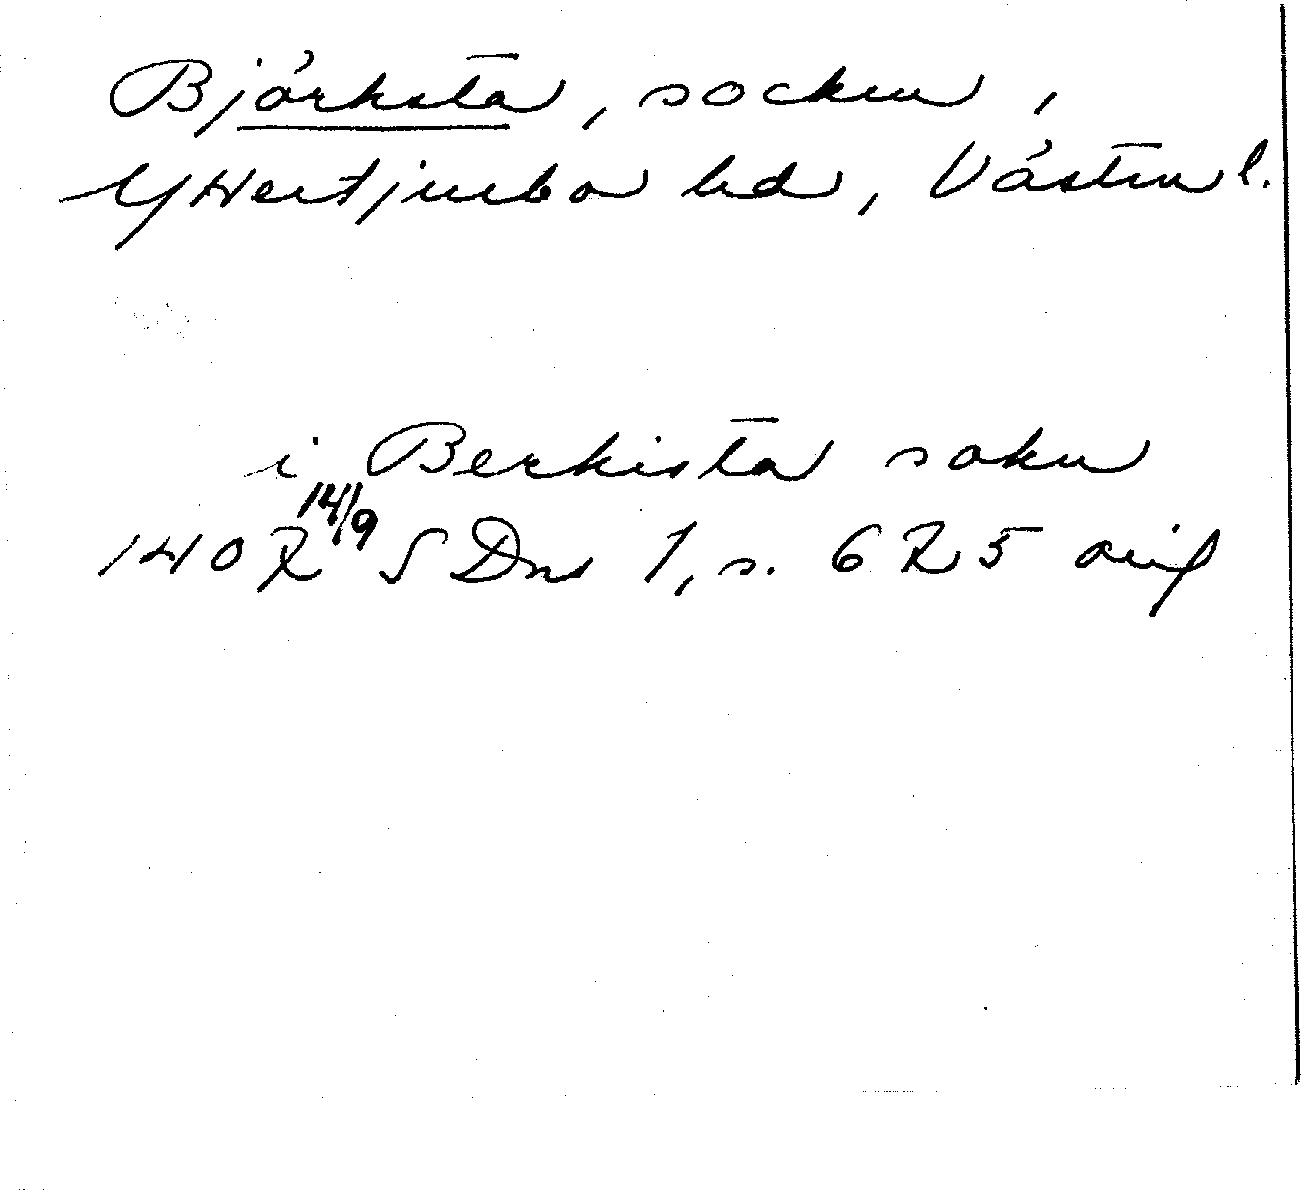 Björksta, socken,
Yttertjurbo hd, Västm l.
i Berkista sokn
1402 14/9 SDns 1, s. 625 orig